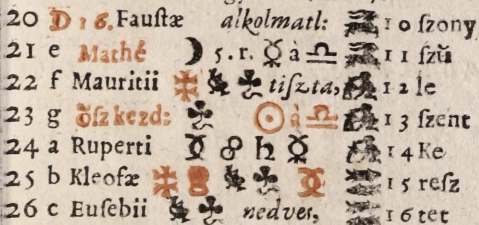 20 D 16. Fauſtæ alkolmatl: 10 ſzony
21 e Mathé ☽ 5. r. ☿ à ♎ 11 ſzŭ
22 f Mauritii tiſzta, 12 le
23 g őſz kezd: ☉ à ♎ 13 ſzent
24 a Ruperti ☍ ♄ ☿ 14 Ke
25 b Kleofæ 15 reſz
26 c Euſebii nedves, 16 tet